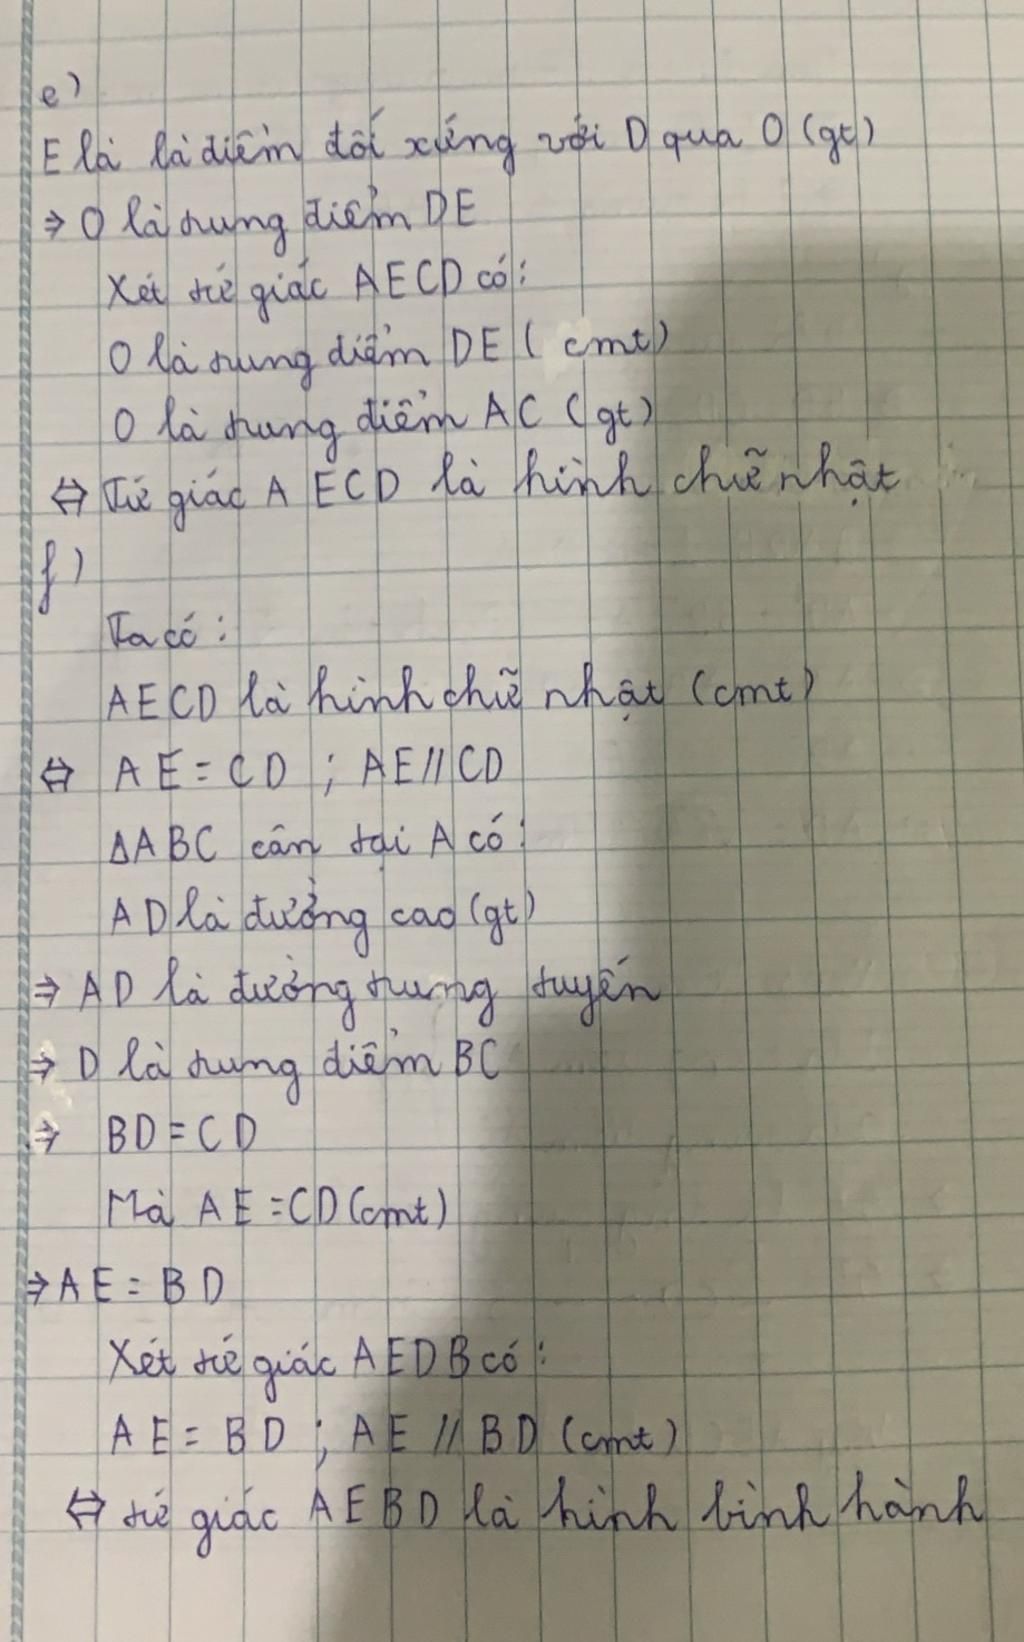 e)
E là là điểm đối xứng với D qua O (gt)
⇒ O là trung điểm DE
Xét tứ giác AECD có:
O là trung điểm DE ( cmt)
O là trung điểm AC (gt)
⇔ Tứ giác A ECD là hình chữ nhật
f)
Ta có:
AECD là hình chữ nhật (cmt)
⇔ AE = CD ; AE // CD
ΔABC cân tại A có:
AD là đường cao (gt)
⇒ AD là đường trung tuyến
⇒ D là trung điểm BC
⇒ BD = CD
Mà AE = CD (cmt)
⇒ AE = BD
Xét tứ giác AEDB có:
AE = BD ; AE // BD (cmt)
⇔ tứ giác AEBD là hình bình hành